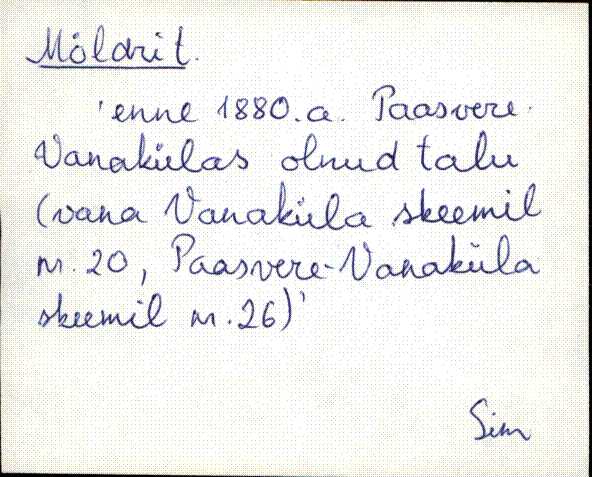 Möldrit.
'enne 1880.a. Paasvere-
Vanakülas olnud talu
(vana Vanaküla skeemil
nr. 20, Paasvere-Vanaküla
skeemil nr. 26)'
Sim